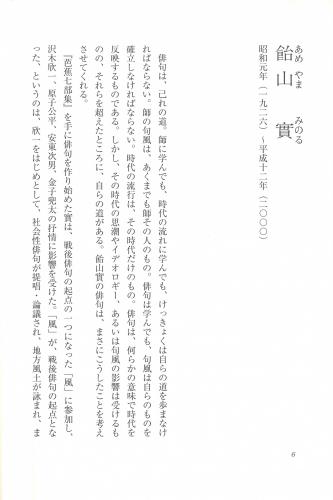 あめ やま みのる
飴山 實
昭和元年(一九二六)~平成十二年(二〇〇〇)
俳句は、己れの道。師に学んでも、時代の流れに学んでも、けっきょくは自らの道を歩まなけ
ればならない。師の句風は、あくまでも師その人のもの。俳句は学んでも、句風は自らのものを
確立しなければならない。時代の流行は、その時代だけのもの。俳句は、何らかの意味で時代を
反映するものである。しかし、その時代の思潮やイデオロギー、あるいは句風の影響は受けるも
のの、それらを超えたところに、自らの道がある。飴山實の俳句は、まさにこうしたことを考え
させてくれる。
『芭蕉七部集』を手に俳句を作り始めた實は、戦後俳句の起点の一つになった「風」に参加し、
沢木欣一、原子公平、安東次男、金子兜太の抒情に影響を受けた。「風」が、戦後俳句の起点とな
った、というのは、欣一をはじめとして、社会性俳句が提唱・論議され、地方風土が詠まれ、ま
6